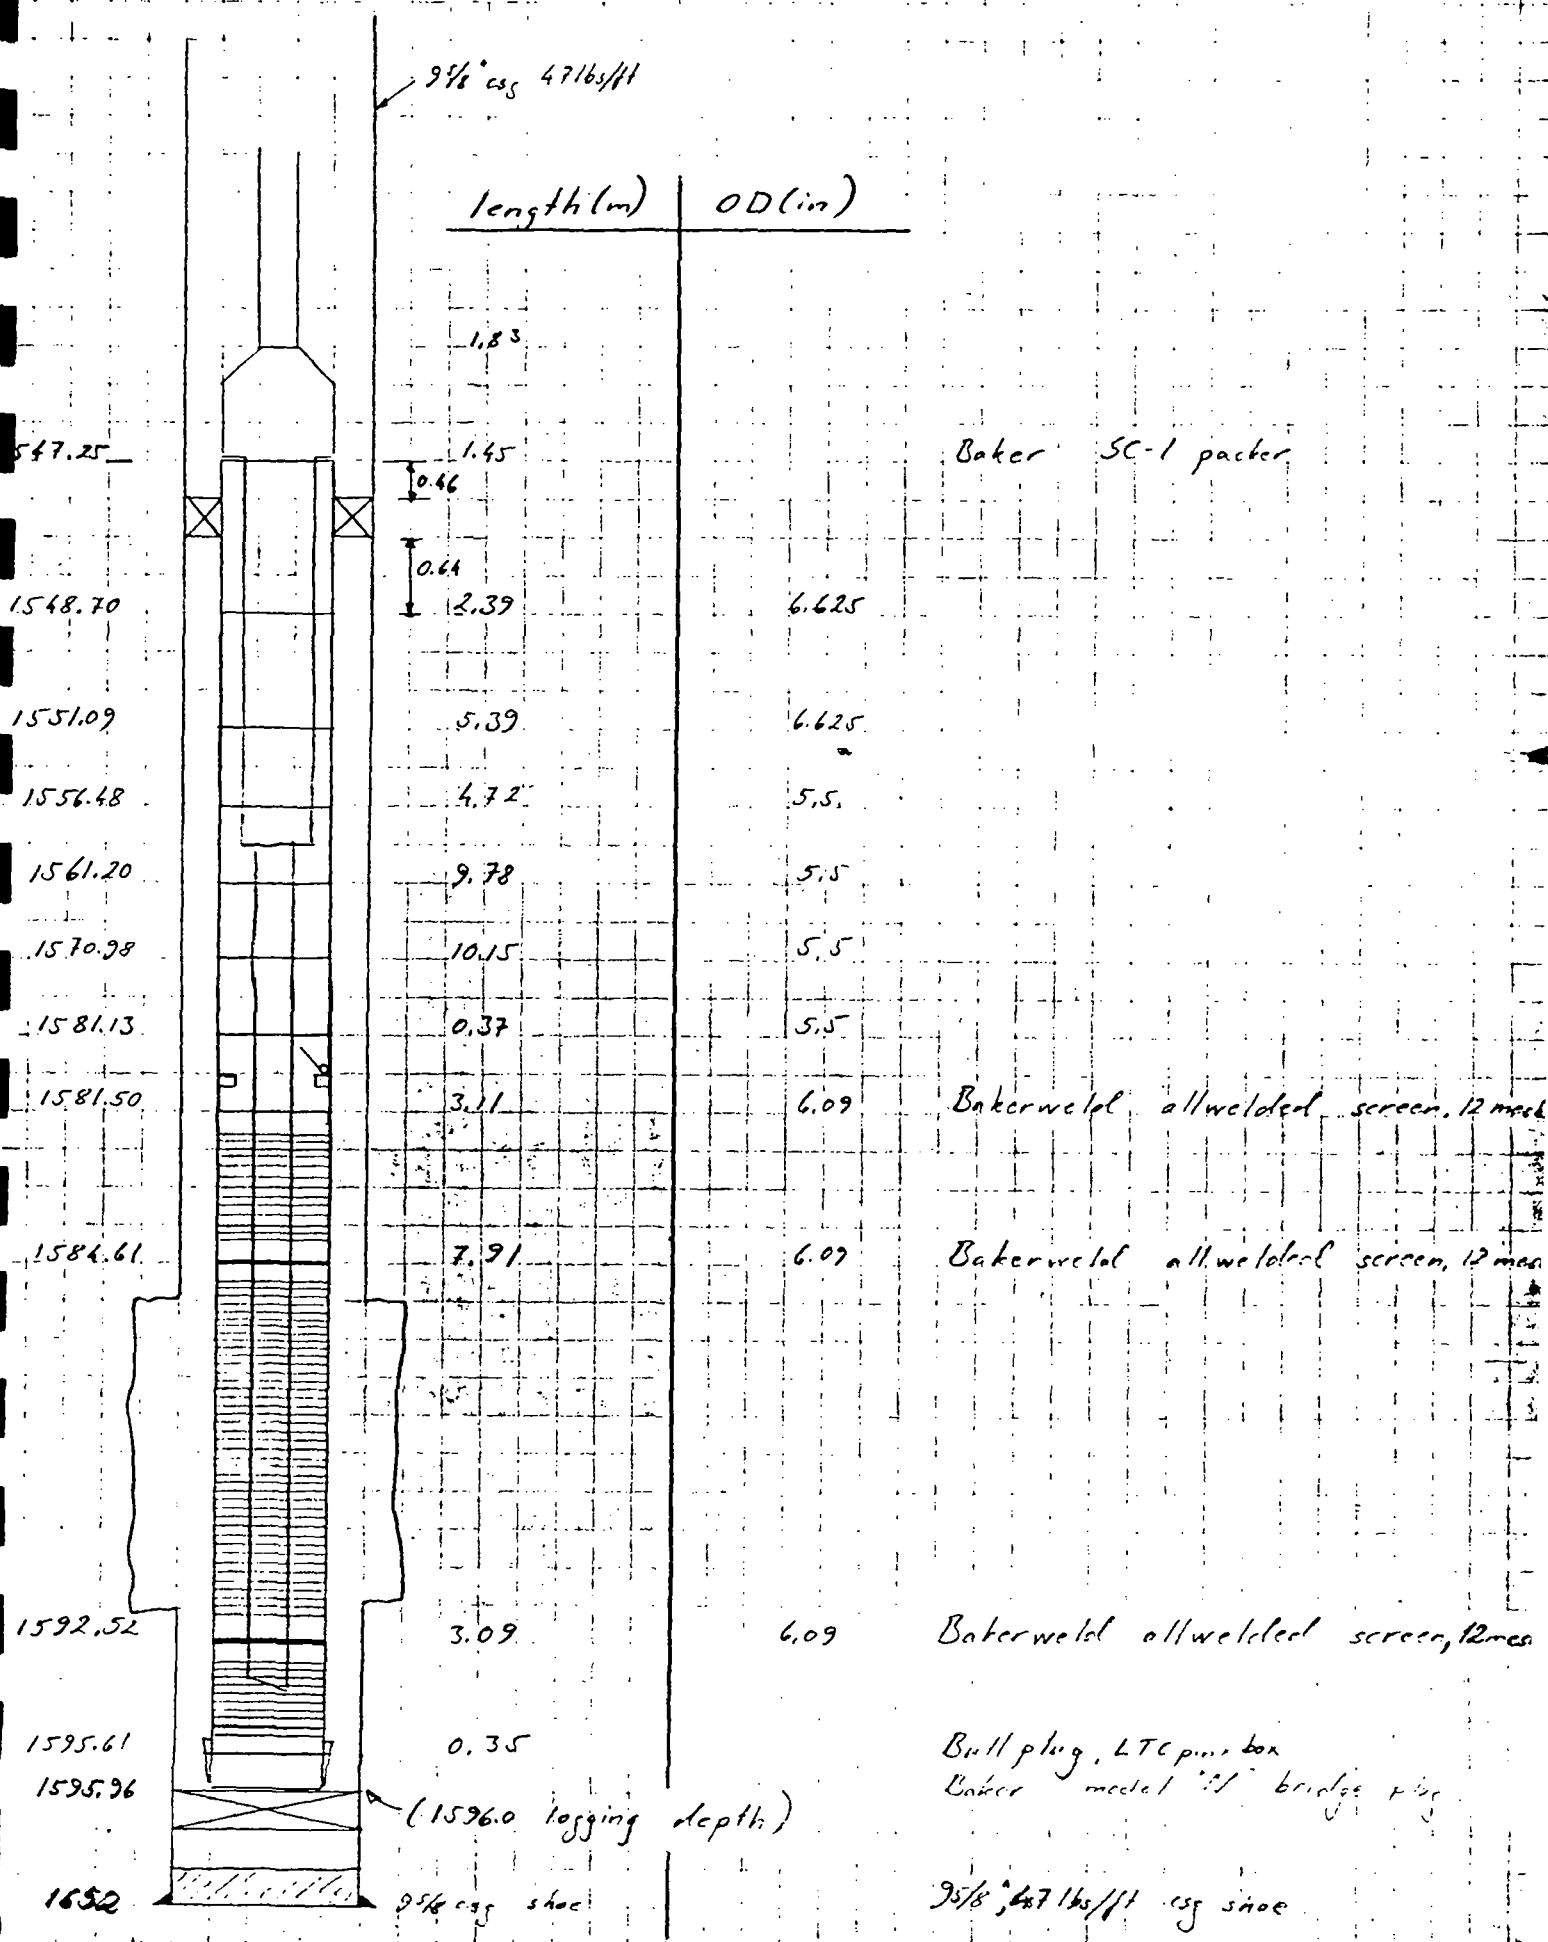 9 5/8" csg 47 lbs/ft
length (m) OD (in)
1.83
547.25 1.45 Baker SC-1 packer
0.46
0.64
1548.70 2.39 6.625
1551.09 5.39 6.625
1556.48 4.72 5.5
1561.20 9.78 5.5
1570.98 10.15 5.5
1581.13 0.37 5.5
1581.50 3.11 6.09 Bakerweld allwelded screen, 12 mesh
1584.61 7.91 6.09 Bakerweld allwelded screen, 12 mes
1592.52 3.09 6.09 Bakerweld allwelded screen, 12 mes
1595.61 0.35 Bull plug, LTC box
1595.96 Baker model bridge plug
(1596.0 logging depth)
1652 9 5/8 csg shoe 9 5/8", 47 lbs/ft csg shoe